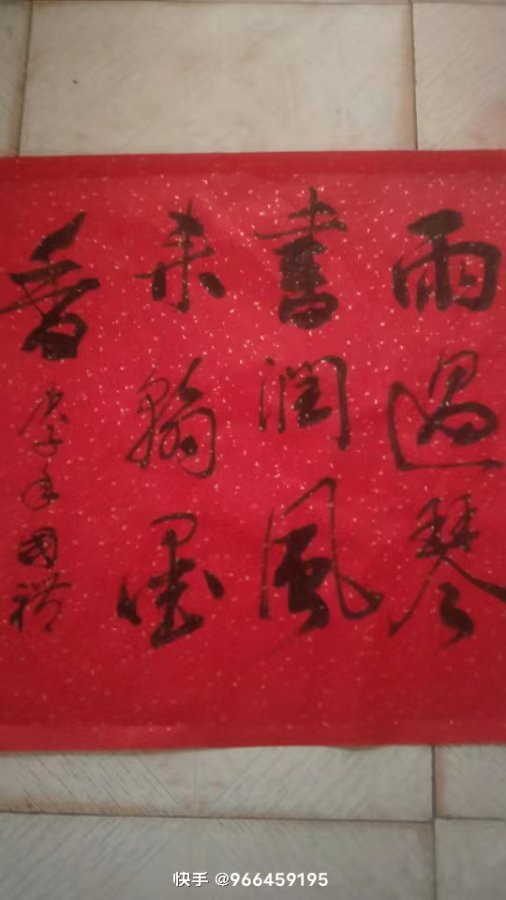 雨過琴
書潤風
来翰墨
香
庚子年國禮
快手 @966459195